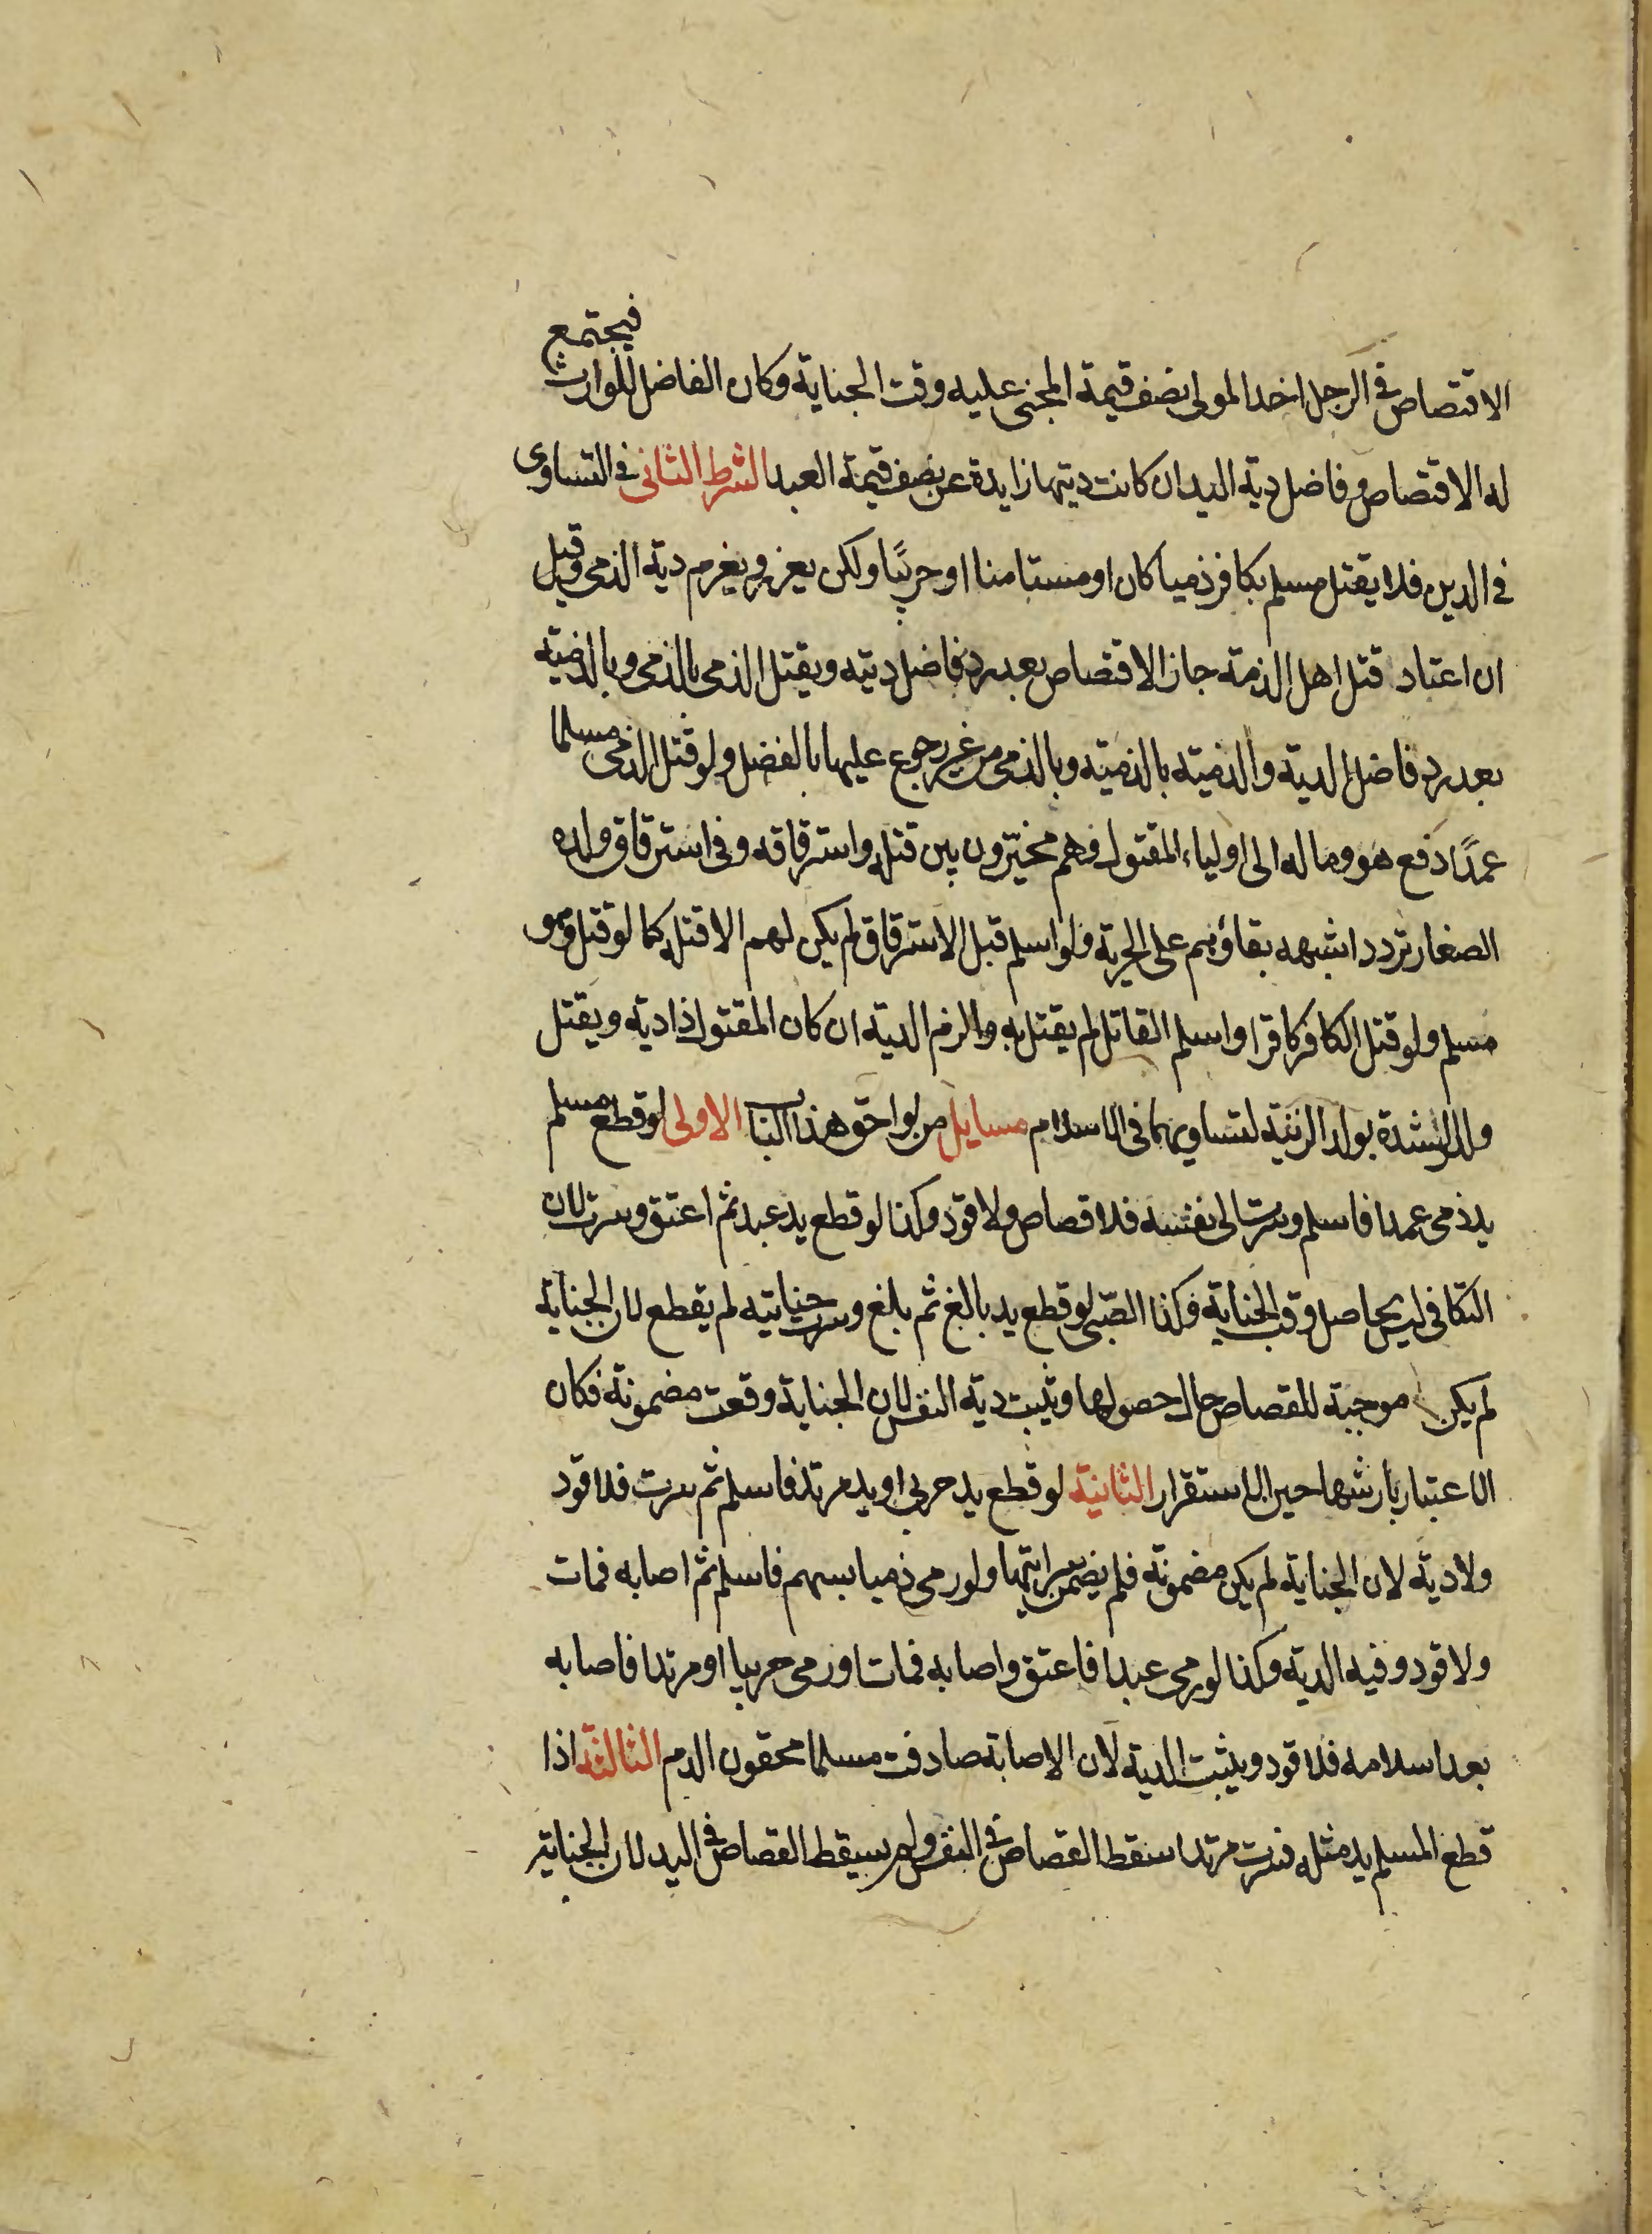 الاقتصاص في الرجل اخذ المولى نصف قيمة المجنى عليه وقت الجناية وكان الفاضل للوارث فيجتمع
له الاقتصاص وفاضل دية اليد ان كانت ديتها زايدة عن نصف قيمة العبد الشرط الثانى في التساوى
في الدين فلا يقتل مسلم بكافر ذميا كان او مستامنا او حربيًا ولكن يعزر ويغرم دية الذمى وقيل
ان اعتاد قتل اهل الذمة جاز الاقتصاص بعد رد فاضل ديته ويقتل الذمى بالذمى وبالذميّه
بعد رد فاضل الدية والذميّه بالذميّه وبالذمى من غير رجوع عليها بالفضل ولو قتل الذمى مسلما
عمدًا دفع هو وماله الى اولياء المقتول وهم مخيّرون بين قتله واسترقاقه وفى استرقاق ولده
الصغار تردد اشبهه بقاؤهم على الحرية ولو اسلم قبل الاسترقاق لم يكن لهم الا قتله كما لو قتل وهو
مسلم ولو قتل الكافر كافرا واسلم القاتل لم يقتل به والزم الدية ان كان المقتول ذا دية ويقتل
ولد الرشدة بولد الزنية لتساويهما فى الاسلام مسايل من لواحق هذا الباب الاولى لو قطع مسلم
يد ذمى عمدا فاسلم وسرت الى نفسه فلا قصاص ولا قود وكذا لو قطع يد عبد ثم اعتق وسرت لان
التكافى ليس بحاصل وقت الجناية وكذا الصّبى لو قطع يد بالغ ثم بلغ وسرت جنايته لم يقطع لان الجناية
لم يكن موجبة للقصاص حال حصولها وتثبت دية النفس لان الجناية وقعت مضمونة فكان
الاعتبار بأرشها حين الاستقرار الثانية لو قطع يد حربى او يد مرتد فاسلم ثم سرت فلا قود
ولا دية لان الجناية لم يكن مضمونة فلم يضمن سرايتها ولو رمى ذميا بسهم فاسلم ثم اصابه فمات
ولا قود وفيه الدية وكذا لو رمى عبدا فاعتق واصابه فمات او رمى حربيا او مرتدا فاصابه
بعد اسلامه فلا قود ويثبت الدية لان الاصابة صادفت مسلما محقون الدم الثالثة اذا
قطع المسلم يد مثله فسرت مرتدا سقط القصاص في النفس ولم يسقط القصاص في اليد لان الجناية